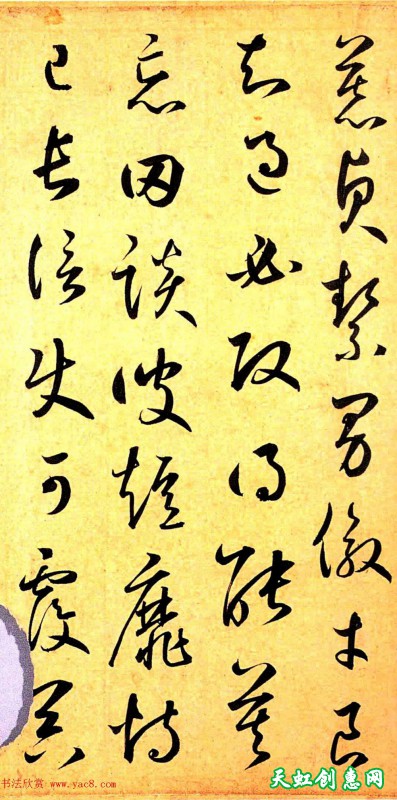 慕貞絜男效才良
知過必改得能莫
忘罔談彼短靡恃
己長信使可覆器
书法欣赏 www.yac8.com
天虹创惠网